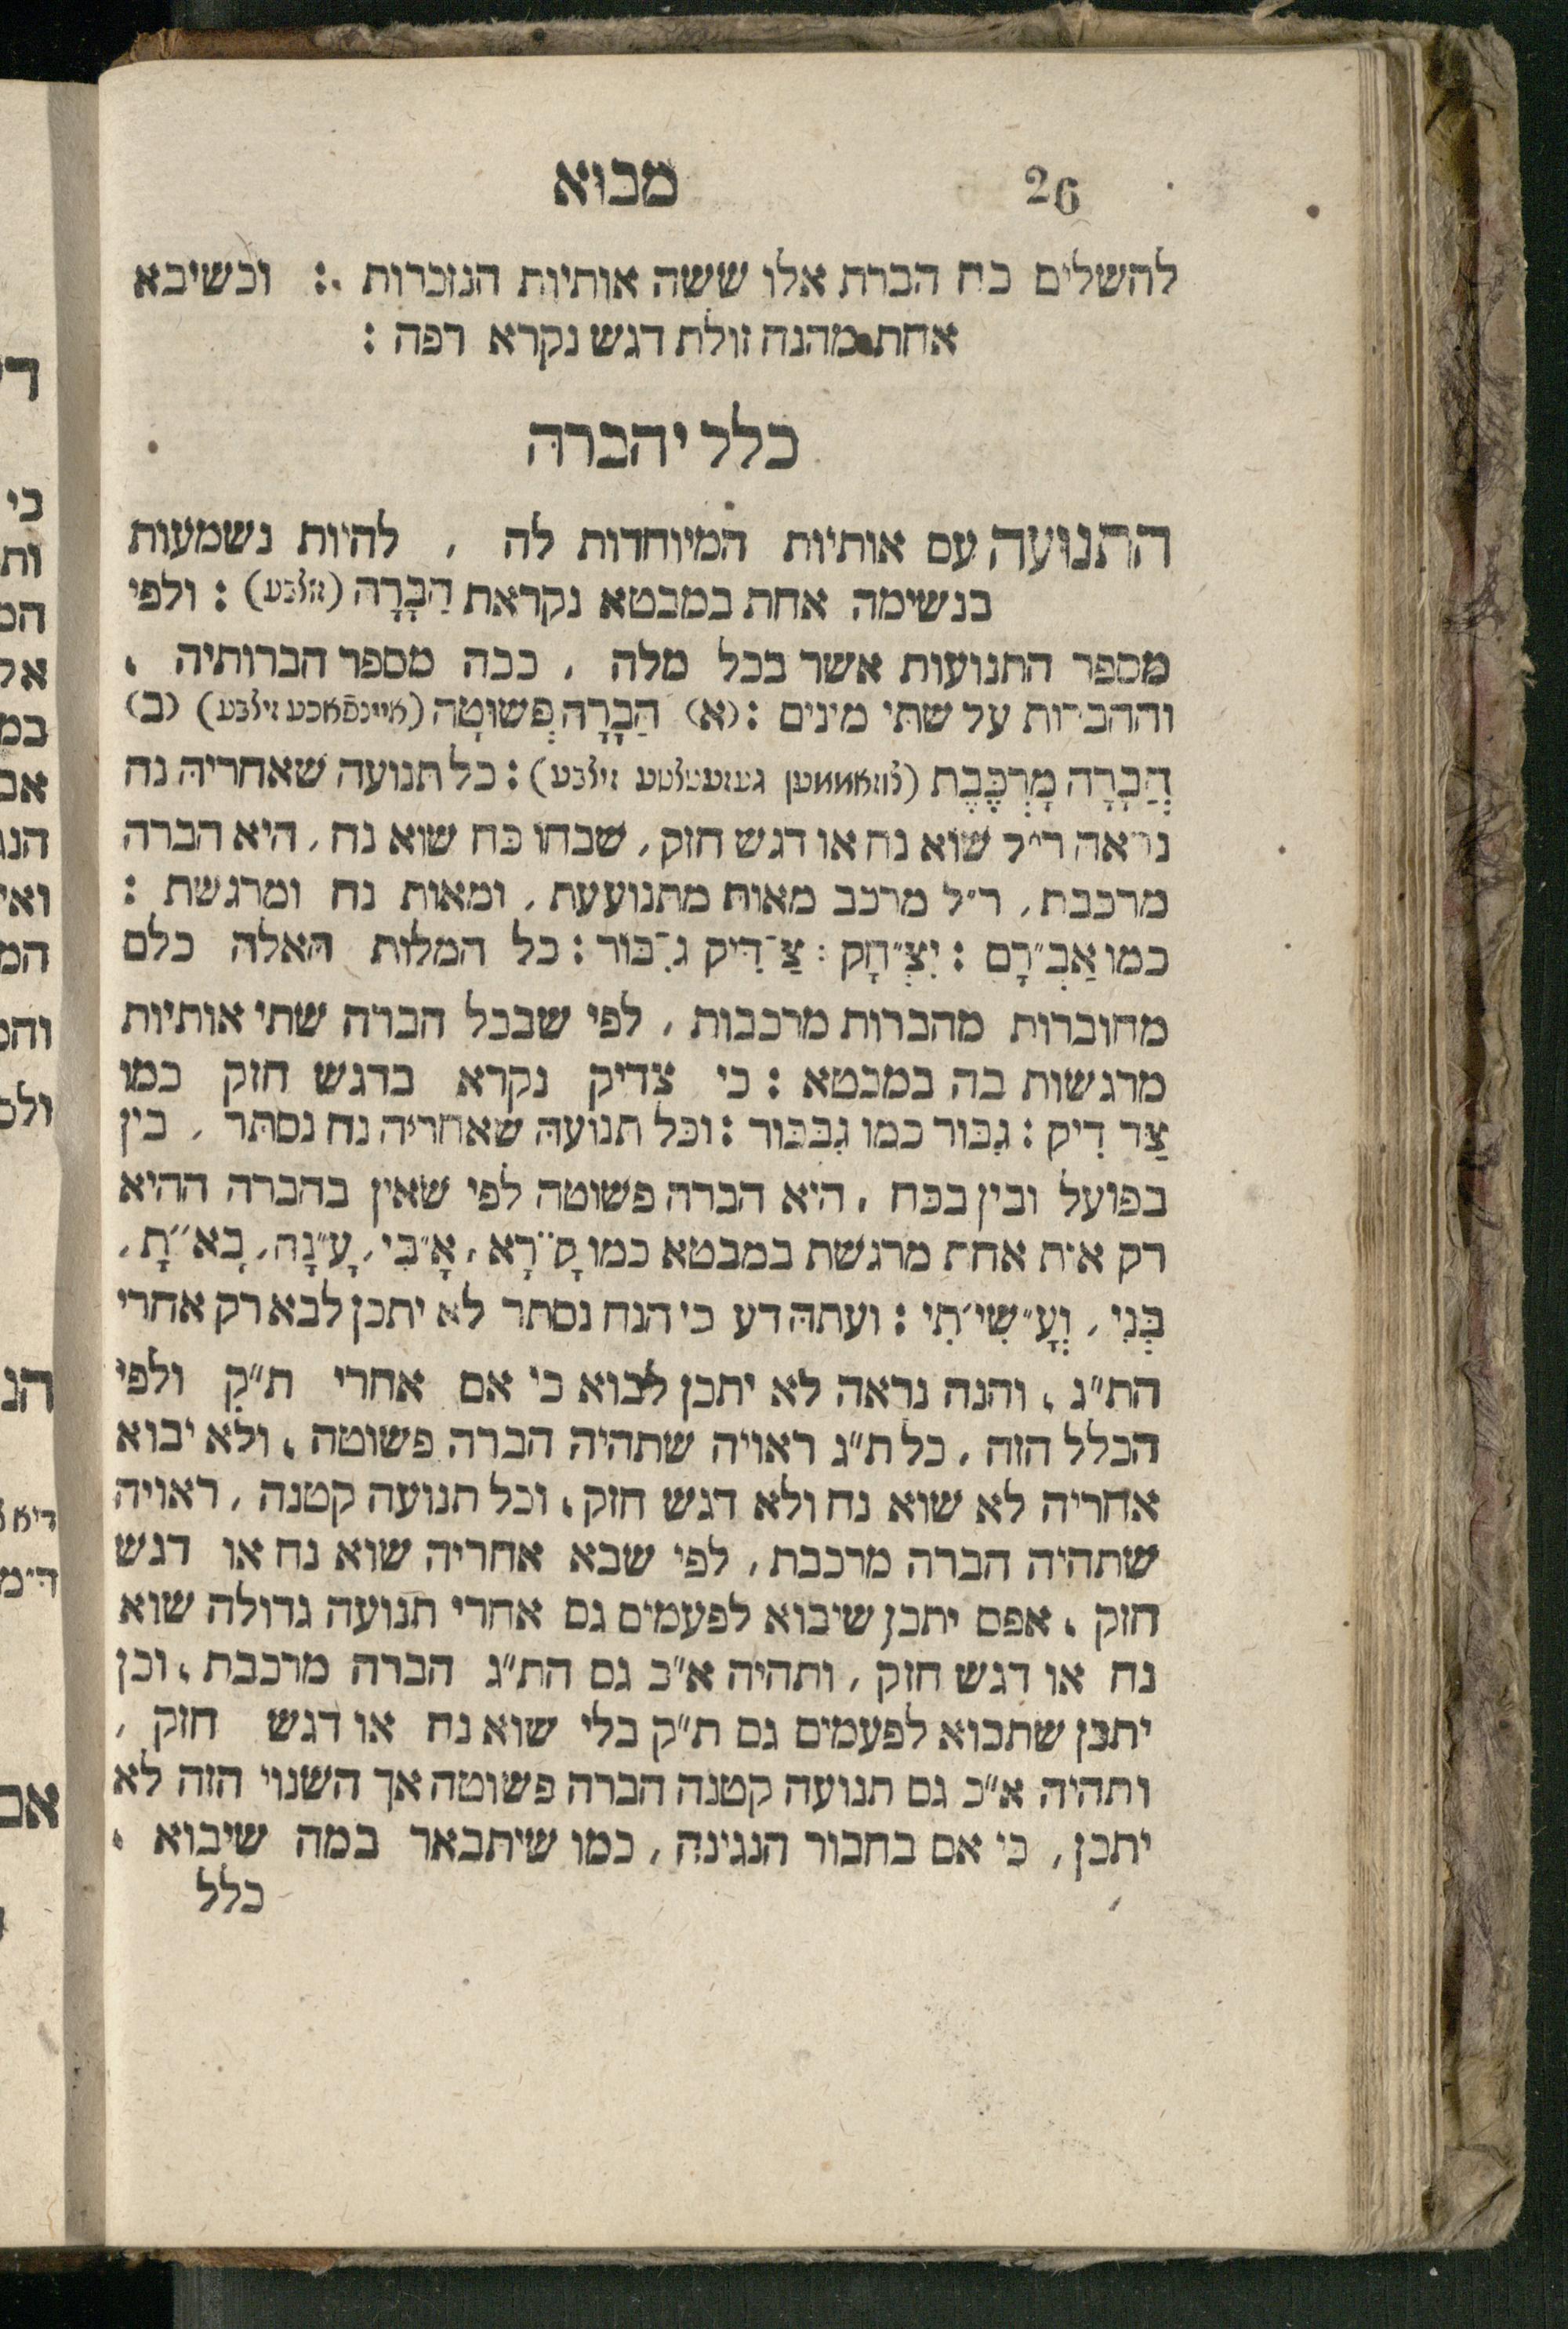 26 מבוא
להשלים כח הברת אלו ששה אותיות הנזכרות : וכשיבא
אחת מהנה זולת דגש נקרא רפה :
כלל יהברה
התנועה עם אותיות המיוחדות לה , להיות נשמעות
בנשימה אחת במבטא נקראת הַבָרָה (זילבע) : ולפי
מספר התנועות אשר בכל מלה , ככה מספר הברותיה .
וההברות על שתי מינים : (א) הַבָרָה פְּשוּטָה (איינפֿאכע זילבע) (ב)
הֲבָרָה מָרְכֶּבֶת (צוזאממען געזעטצטע זילבע) : כל תנועה שאחריה נח
נראה ר״ל שוא נח או דגש חזק , שכחו כח שוא נח , היא הברה
מרכבת , ר״ל מרכב מאות מתנועעת , ומאות נח ומרגשת :
כמו אַבְ״רָם : יִצְ״חָק : צַ־דִּיק גִ־בּוֹר : כל המלות האלה כלם
מחוברות מהברות מרכבות , לפי שבכל הברה שתי אותיות
מרגשות בה במבטא : כי צדיק נקרא בדגש חזק כמו
צַּד דִיק : גִבּוֹר כמו גִבבּוֹר : וכל תנועה שאחריה נח נסתר , בין
בפועל ובין בכח , היא הברה פשוטה לפי שאין בהברה ההיא
רק אות אחת מרגשת במבטא כמו קָ״רָא , אָ״בִי , עָ״נָה , בָא״תָ ,
בְּנִי , וְעָ״שִי״תִי : ועתה דע כי הנח נסתר לא יתכן לבא רק אחרי
הת״ג , והנה נראה לא יתכן לבוא כי אם אחרי ת״ק ולפי
הכלל הזה , כל ת״ג ראויה שתהיה הברה פשוטה , ולא יבוא
אחריה לא שוא נח ולא דגש חזק , וכל תנועה קטנה , ראויה
שתהיה הברה מרכבת , לפי שבא אחריה שוא נח או דגש
חזק , אפס יתכן שיבוא לפעמים גם אחרי תנועה גדולה שוא
נח או דגש חזק , ותהיה א״כ גם הת״ג הברה מרכבת , וכן
יתכן שתבוא לפעמים גם ת״ק בלי שוא נח או דגש חזק ,
ותהיה א״כ גם תנועה קטנה הברה פשוטה אך השנוי הזה לא
יתכן , כי אם בחבור הנגינה , כמו שיתבאר במה שיבוא .
כלל